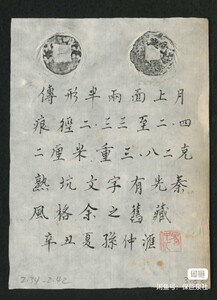 傳形半兩面上月
痕徑二·三三至二·四
二厘米重三·八二克
熟坑文字有先秦
風格余之舊藏
辛丑夏孫仲滙
2.94-2.42
闲鱼